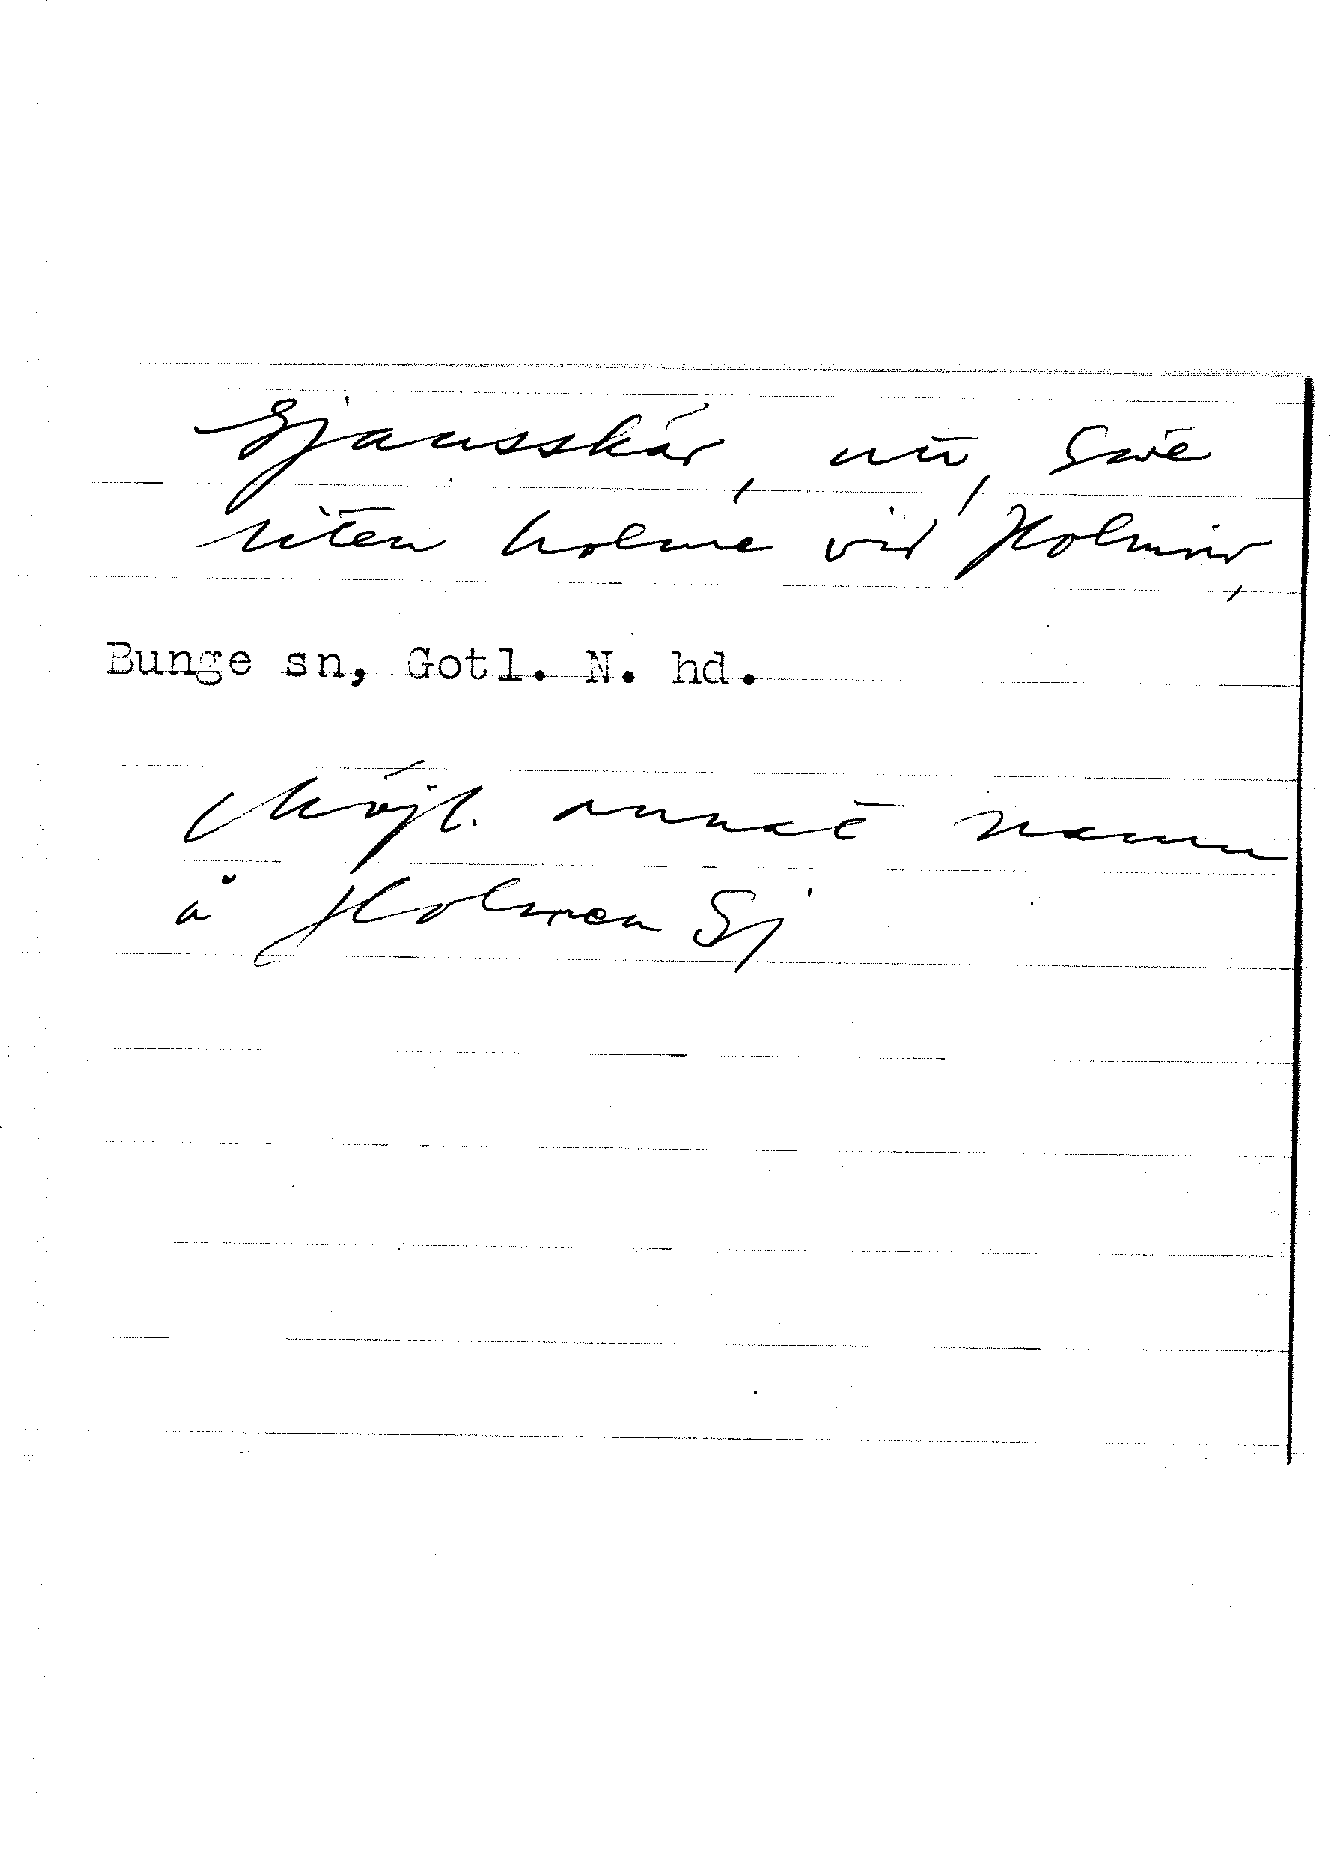 Sjausskär, nu, Säve
liten holme vid Holmör,
Bunge sn, Gotl. N. hd.
Möjl. annat namn
å Holmen Sj